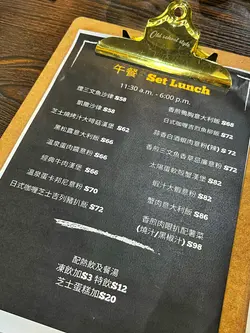 Old school style
午餐 Set Lunch
11:30 a.m. - 6:00 p.m.
煙三文魚沙律 $58
凱撒沙律 $58
芝士燒烤汁大啡菇漢堡 $62
黑松露意大利飯 $66
溫泉蛋肉醬意粉 $66
經典牛肉漢堡 $66
溫泉蛋卡邦尼意粉 $70
日式咖喱芝士吉列豬扒飯 $72
香煎鴨胸意大利飯 $68
日式咖喱吉列魚柳飯
蒜香白酒蜆肉意粉(辣) $72
香煎三文魚香草忌廉意粉 $72
太陽蛋軟殼蟹漢堡 $82
蝦汁大蝦意粉 $82
蟹肉意大利飯 $86
香煎肉眼扒配薯菜
(燒汁/黑椒汁) $98
配熱飲及餐湯
凍飲加$3 特飲$12
芝士蛋糕加$20